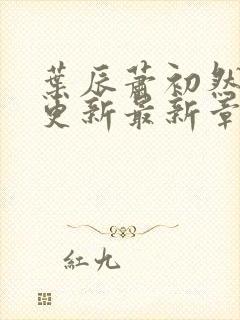 葉辰蕭初然
更新最新章
紅九